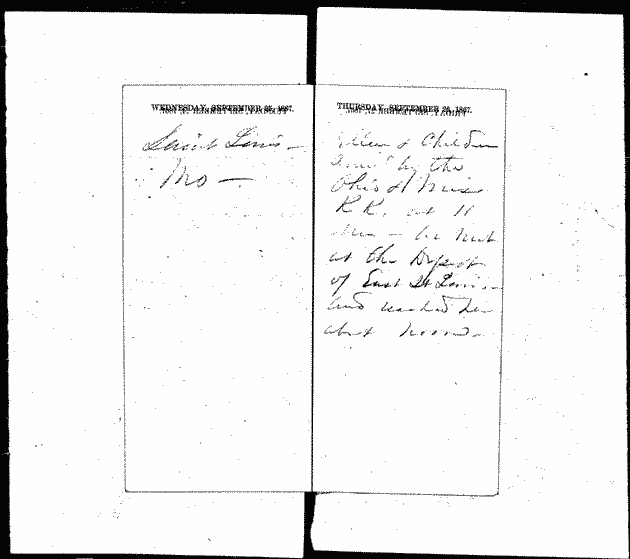 WEDNESDAY, SEPTEMBER 25, 1867.
Saint Louis —
Mo —
THURSDAY, SEPTEMBER 26, 1867.
Ellen & Children
by the
Ohio & Miss
R R. at 11
at the Depot
of East St Louis —
and reached
about noon —